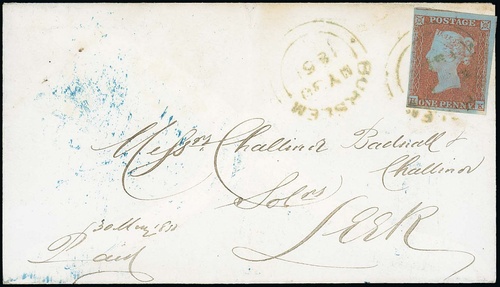 POSTAGE
ONE PENNY
BURSLEM
MY 30
Messrs Challinor Badnall &
Challinor
Solrs
Leek
30 May 1851